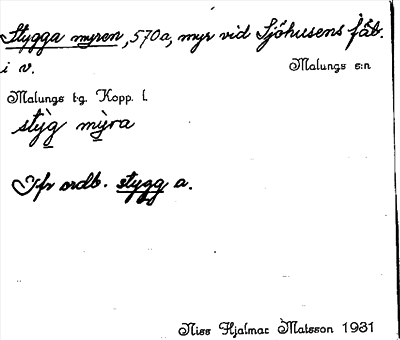 Stygga myren, 570a, myr vid Sjöhusens fäb.
i v. Malungs s:n
Malungs t:g. Kopp. l.
stỳg mỳra
Jfr ordb. stygg a.
Niss Hjalmar Matsson 1931